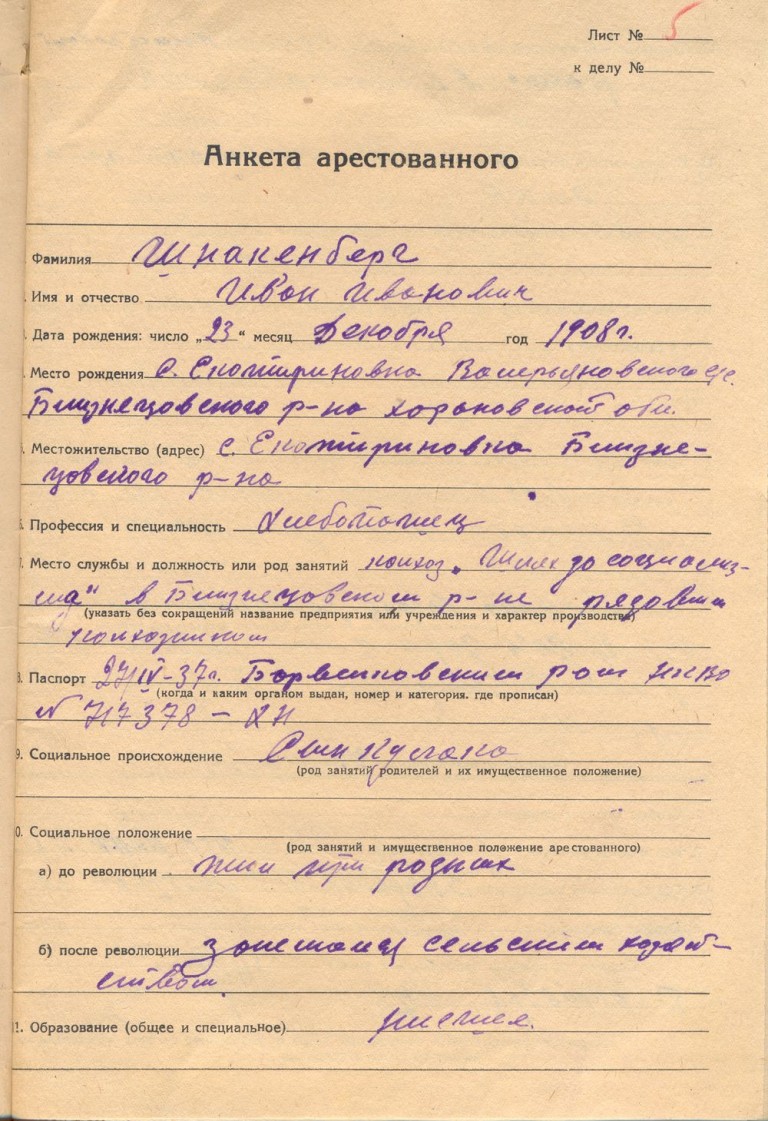 Лист № 5
к делу №
Анкета арестованного
Фамилия Шнакенберг
Имя и отчество Иван Иванович
Дата рождения: число „23“ месяц Декобря год 1908 г.
Место рождения с. Екатириновка Валерьяновского с/с.
Близнецовского р-на харьковской обл.
Местожительство (адрес) с. Екатириновка Близне-
цовского р-на
6. Профессия и специальность Хлебопашец
7. Место службы и должность или род занятий колхоз „Шлях до социализ-
ма" в Близнецовском р-не рядовым
(указать без сокращений название предприятия или учреждения и характер производства)
колхозником
8. Паспорт 27/IV-37г. Барвенковским рот НКВД
(когда и каким органом выдан, номер и категория. где прописан)
№ 717378 – ХН
9. Социальное происхождение Сын кулака
(род занятий родителей и их имущественное положение)
0. Социальное положение
(род занятий и имущественное положение арестованного)
а) до революции жил при родных
б) после революции занимался сельским хозяй-
ством
1. Образование (общее и специальное) низшее.